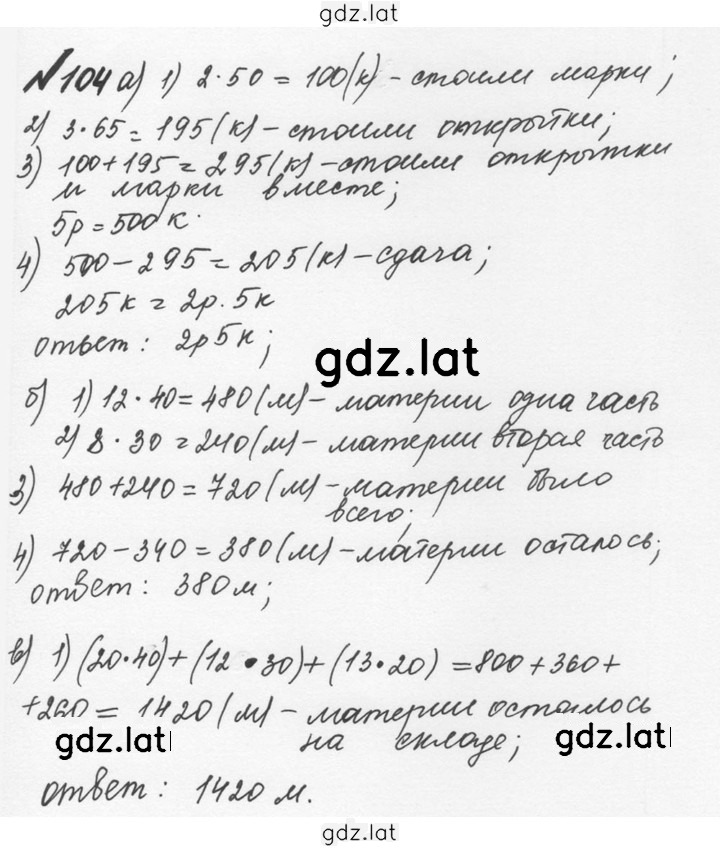 gdz.lat
№104 а) 1) 2·50 = 100(к) - стоили марки;
2) 3·65 = 195(к) - стоили открытки;
3) 100+195 = 295(к) - стоили открытки
и марки вместе;
5р = 500к.
4) 500-295 = 205(к) - сдача;
205к = 2р. 5к
ответ: 2р 5к;
gdz.lat
б) 1) 12·40 = 480(м) - материи одна часть
2) 8·30 = 240(м) - материи вторая часть
3) 480+240 = 720(м) - материи было
всего;
4) 720-340 = 380(м) - материи осталось;
ответ: 380м;
в) 1) (20·40)+(12·30)+(13·20) = 800+360+
+260 = 1420(м) - материи осталось
на складе;
gdz.lat
gdz.lat
ответ: 1420 м.
gdz.lat